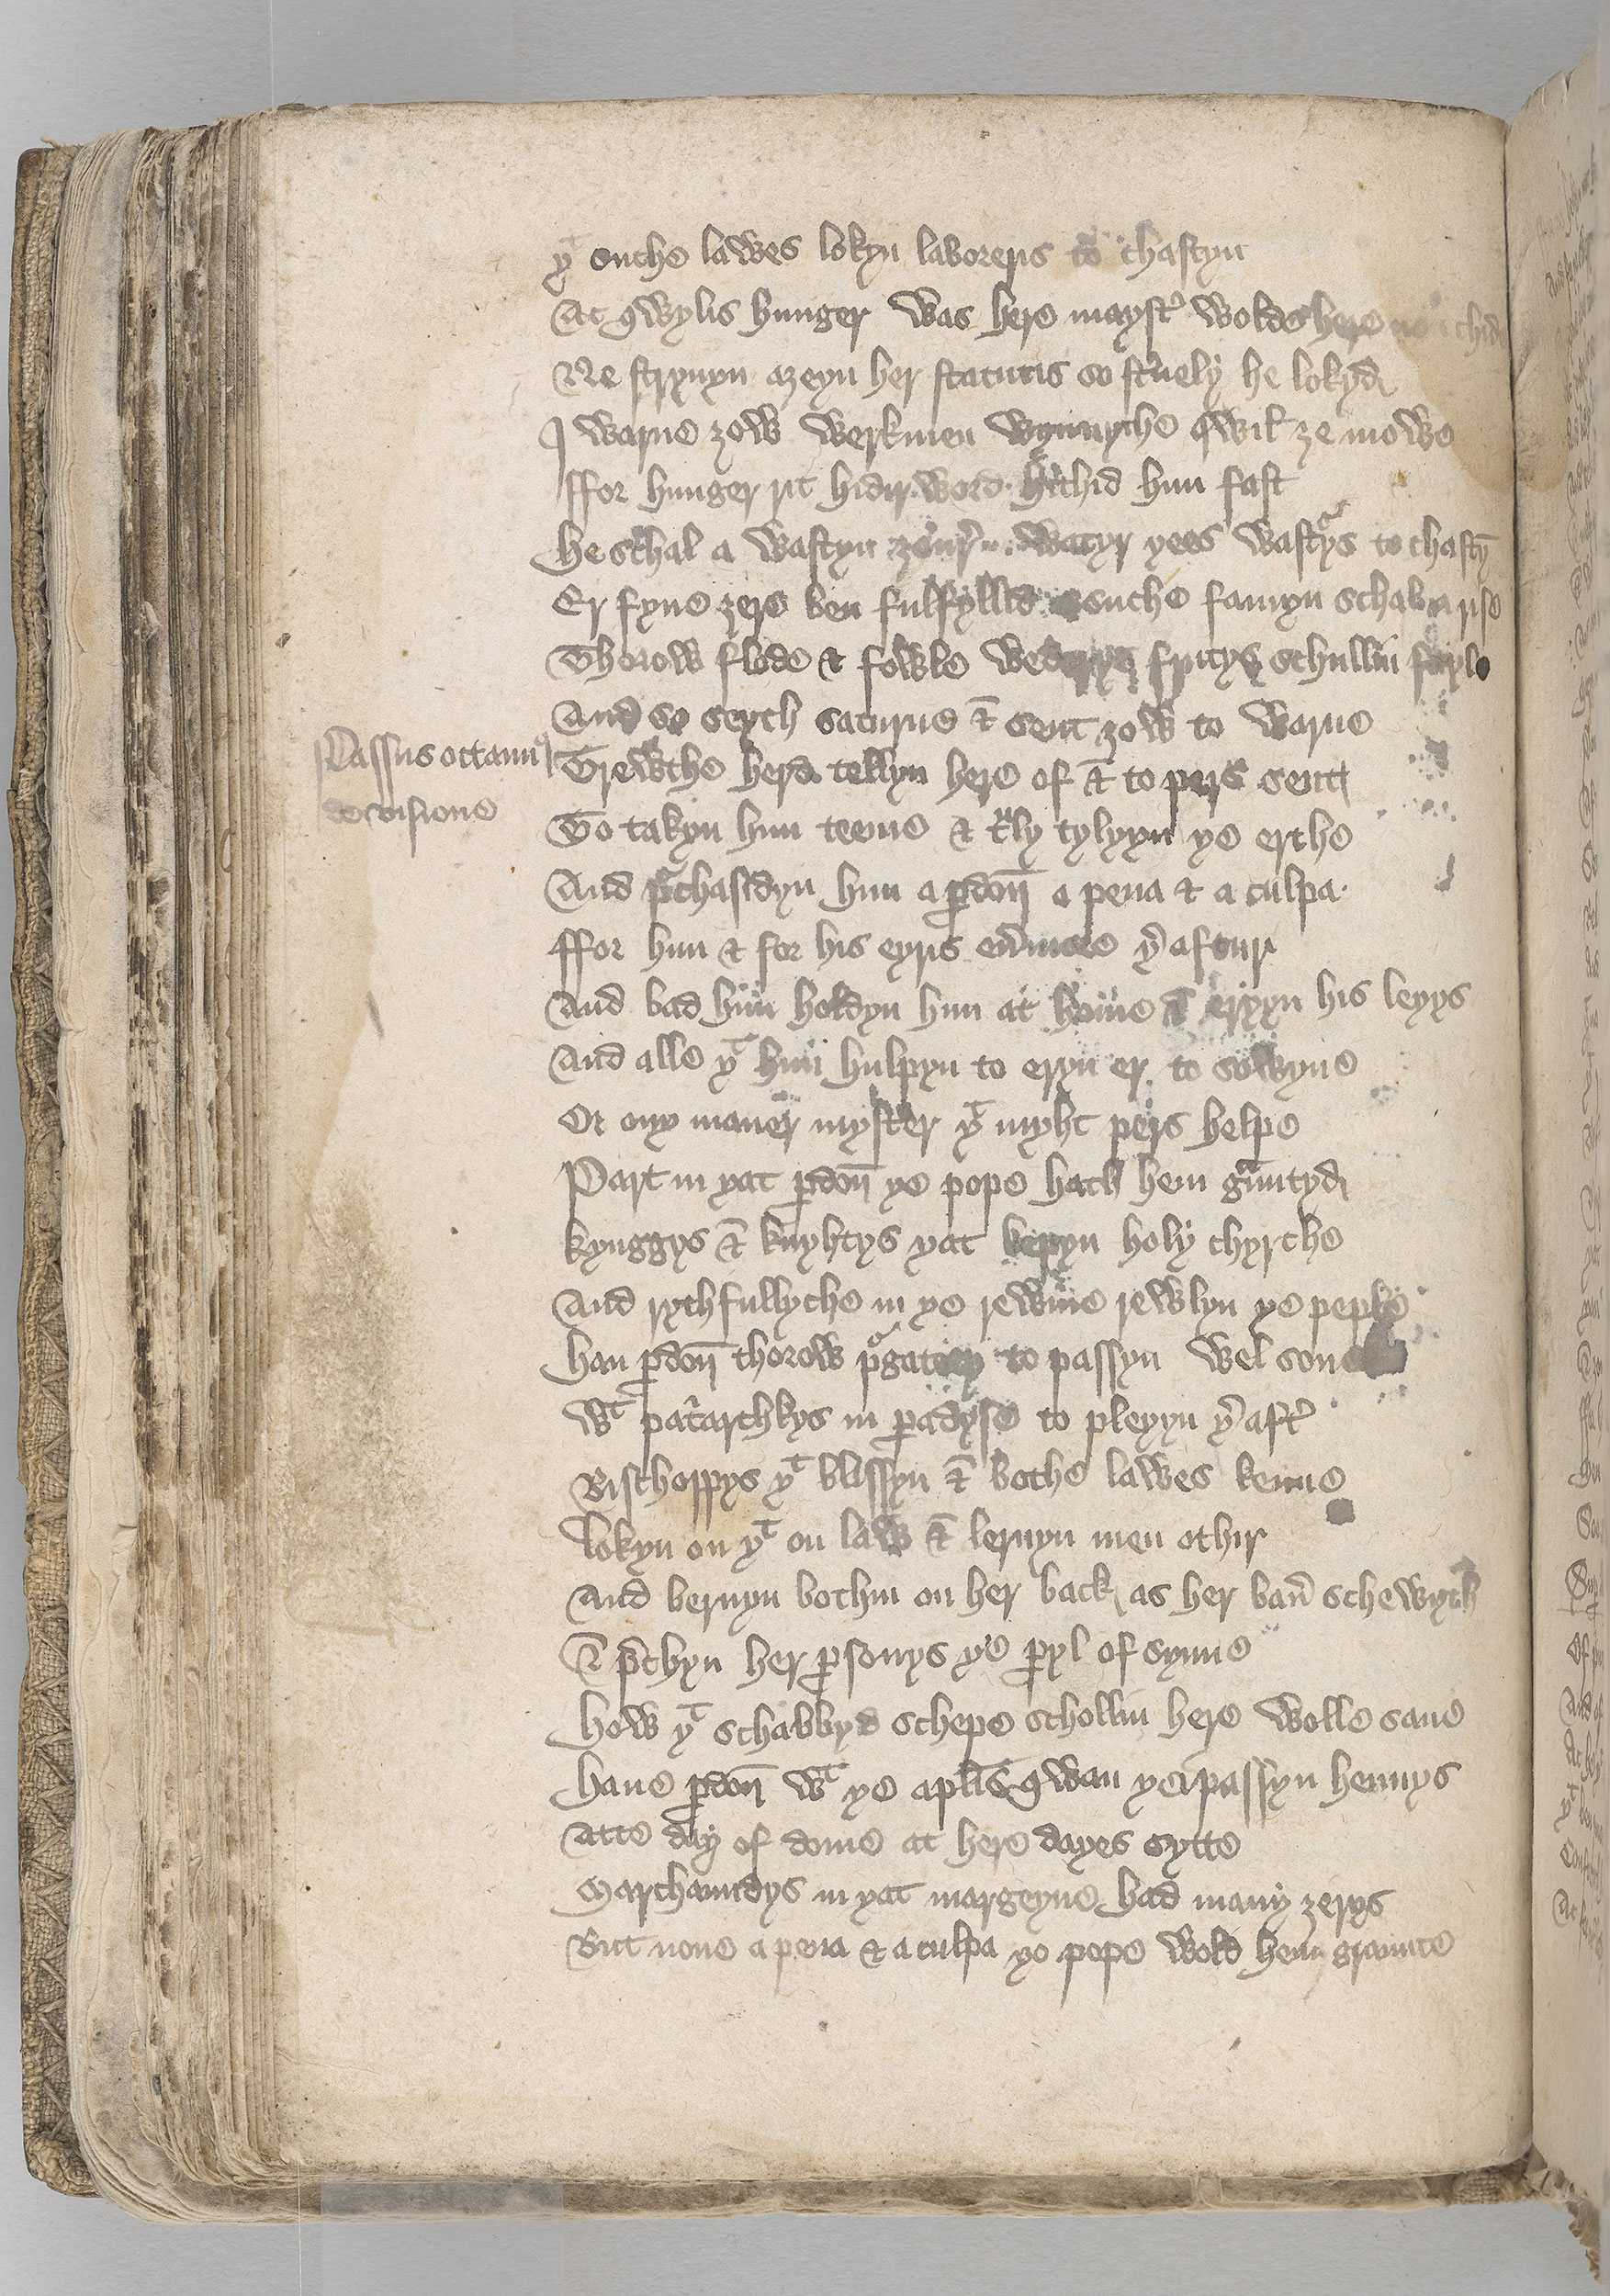 yt suche lawes lokyn laboreris to chastyn
At qwylis hunger was here mayster wolde here non chide
Ne stryuyn azeyn her statutis so sternely he lokyd
I warne zow werkmen wynnythe qwil ze mowe
ffor hunger hidir word hythid him fast
He schal a wastyn watyr yees wastorys to chastyn
Er fyue zere ben fulfyllid suche famyn schal a rise
Thorow flode & fowle wederys frutys schullin fayle
And so seyth saturne & sent zow to warne
Passus octauus
de visione
Trewthe herd tellyn here of & to pers sent
To takyn him teeme & trewly tylyyn ye erthe
And purchasedyn him a pardon a pena & a culpa
ffor him & for his eyris euermore yer aftur
And bad him holdyn him at home & eryyn his leyys
And alle yt him hulpyn to eryn er to sowyne
Or ony maner myster yt myht pers helpe
Part in yat pardon ye pope hath hem grauntyd
kynggys & knyhtys yat kepyn holy chyrche
And rythfullyche in ye rewme rewlyn ye peple
han pardon thorow purgatory to passyn wel sone
Wt patriarchkys in paradyse to pleyyn yer after
Bischoppys yt blissyn & bothe lawes kenne
lokyn on yt on law & lernyn men othir
And bernyn bothin on her back as her baner schewyth
& prechyn her personys ye peryl of synne
how yt schabbyd schepe schollin here wolle saue
haue pardon wt ye apostlis qwan yei passyn hennys
Atte day of dome at here dayes sytte
Marchauntdys in yat margeyne had many zerys
But none a pena & a culpa ye pope wold hem graunte